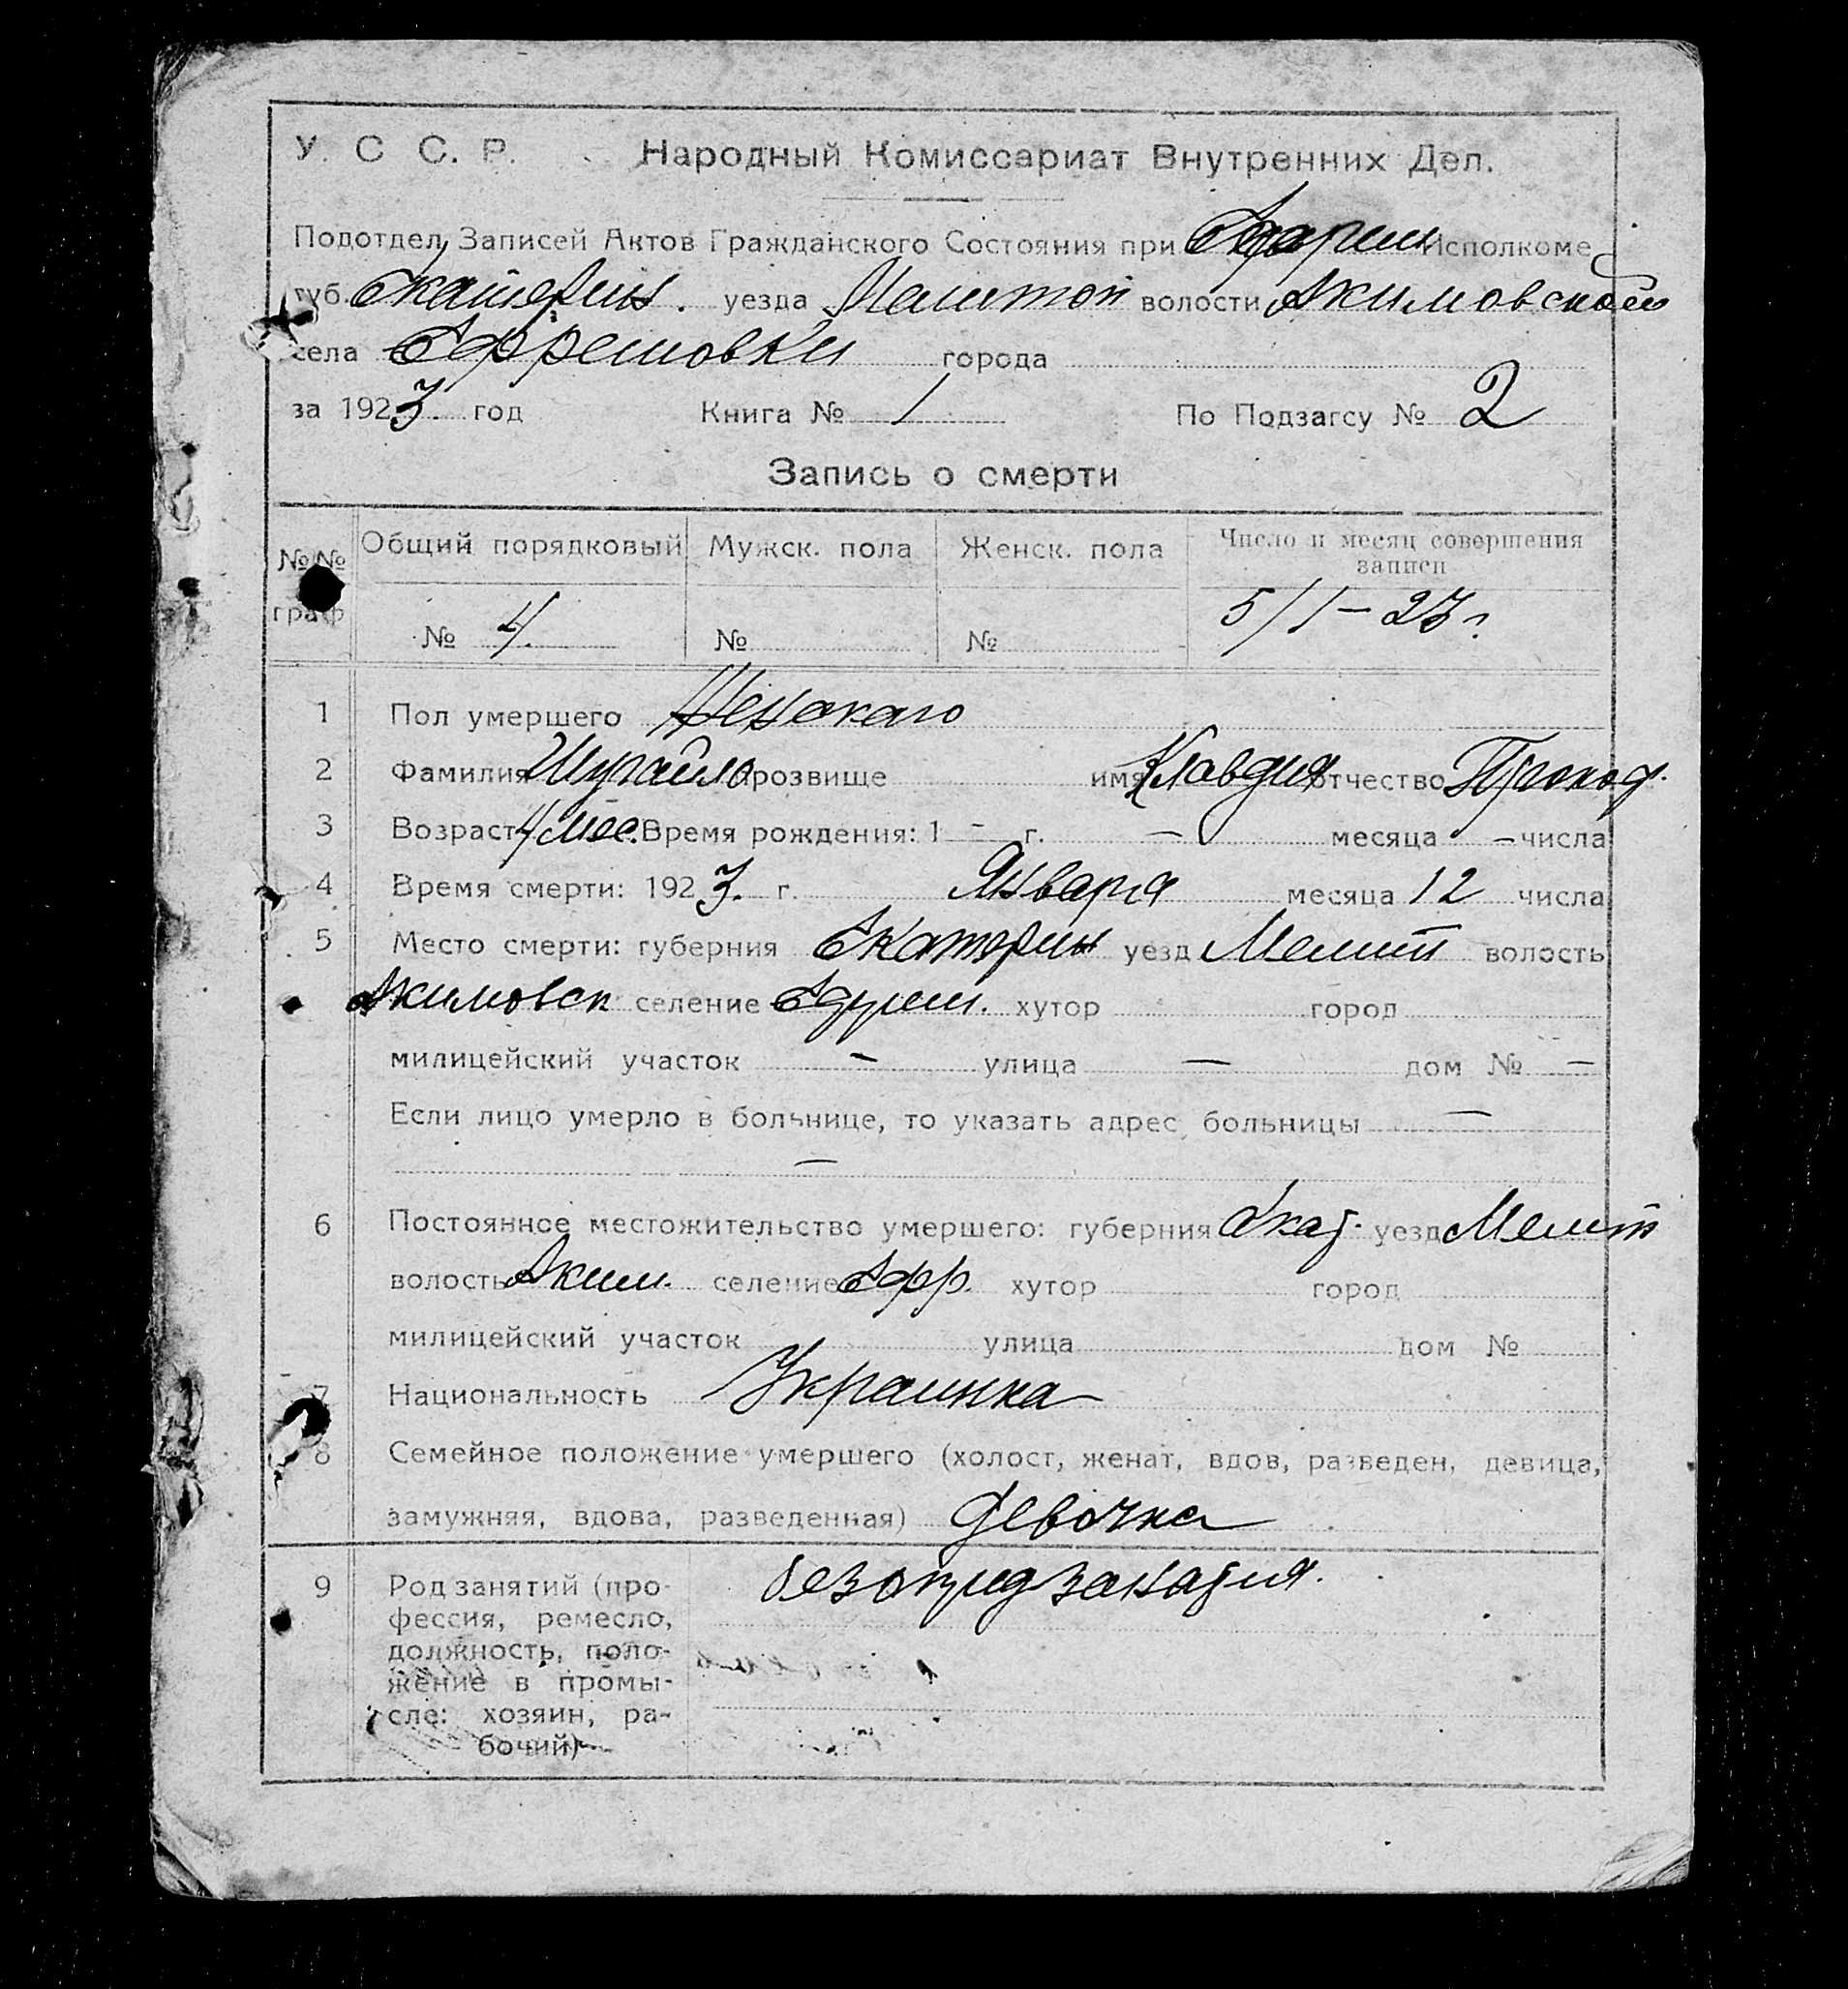 У. С С. Р. Народный Комиссариат Внутренних Дел.
Подотдел Записей Актов Гражданского Состояния при Исполкоме
губ. Екатерин. уезда Мелитоп волости Акимовской
села Ефремовки города
за 1923. год Книга № 1 По Подзагсу № 2
Запись о смерти
№№ граф Общий порядковый Мужск. пола Женск. пола Число и месяц совершения
записи
№ 4. № № 5/I – 23 г.
1 Пол умершего Женскаго
2 Фамилия Шугайло прозвище имя Клавдия отчество Прокоф.
3 Возраст 4 мес. Время рождения: 1 - г. — месяца — числа
4 Время смерти: 1923. г. Января месяца 12 числа
5 Место смерти: губерния Екатерин уезд Мелит волость
Акимовск селение хутор город
милицейский участок – улица — дом № —
Если лицо умерло в больнице, то указать адрес больницы —
—
6 Постоянное местожительство умершего: губерния Екат. уезд Мелит
волость Аким. селение Ефр. хутор город
милицейский участок улица дом №
7 Национальность Украинка
8 Семейное положение умершего (холост, женат, вдов, разведен, девица,
замужняя, вдова, разведенная) девочка
9 Род занятий (про-
фессия, ремесло,
должность, поло-
жение в промы-
сле: хозяин, ра-
бочий)